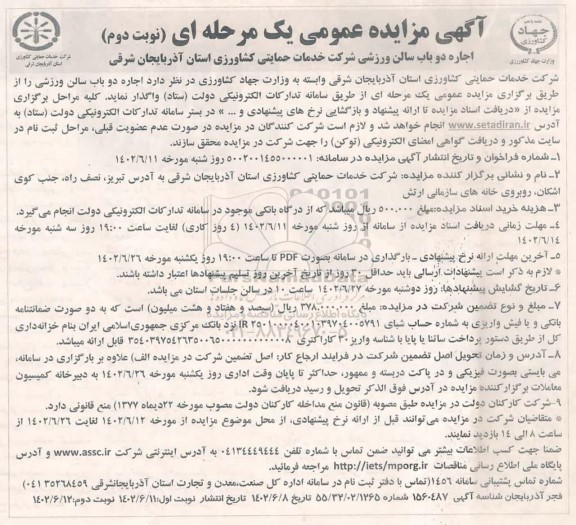 آگهی مزایده عمومی یک مرحله ای (نوبت دوم)
اجاره دو باب سالن ورزشی شرکت خدمات حمایتی کشاورزی استان آذربایجان شرقی
جهاد کشاورزی
وزارت جهاد کشاورزی
شرکت خدمات حمایتی کشاورزی
استان آذربایجان شرقی
شرکت خدمات حمایتی کشاورزی استان آذربایجان شرقی وابسته به وزارت جهاد کشاورزی در نظر دارد اجاره دو باب سالن ورزشی را از
طریق برگزاری مزایده عمومی یک مرحله ای از طریق سامانه تدارکات الکترونیکی دولت (ستاد) واگذار نماید. کلیه مراحل برگزاری
مزایده از «دریافت اسناد مزایده تا ارائه پیشنهاد و بازگشایی نرخ های پیشنهادی و ... » در بستر سامانه تدارکات الکترونیکی دولت (ستاد) به
آدرس www.setadiran.ir انجام خواهد شد و لازم است شرکت کنندگان در مزایده در صورت عدم عضویت قبلی، مراحل ثبت نام در
سایت مذکور و دریافت گواهی امضای الکترونیکی (توکن) را جهت شرکت در مزایده محقق سازند.
۱-شماره فراخوان و تاریخ انتشار آگهی مزایده در سامانه: ۵۰۰۲۰۰۱۴۵۵۰۰۰۰۰۱ روز شنبه مورخه ۱۴۰۲/۶/۱۱
۲-نام و نشانی برگزار کننده مزایده: شرکت خدمات حمایتی کشاورزی استان آذربایجان شرقی به آدرس تبریز، نصف راه، جنب کوی
اشکان، روبروی خانه های سازمانی ارتش
۳-هزینه خرید اسناد مزایده:مبلغ ۵۰۰.۰۰۰ ریال میباشد که از درگاه بانکی موجود در سامانه تدارکات الکترونیکی دولت انجام می‌گیرد.
۴- مهلت زمانی دریافت اسناد مزایده از سامانه از روز شنبه مورخه ۱۴۰۲/۶/۱۱ (۴ روز کاری) لغایت ساعت ۱۹:۰۰ روز سه شنبه مورخه
۱۴۰۲/۶/۱۴
۵- آخرین مهلت ارائه نرخ پیشنهادی ـ بارگذاری در سامانه بصورت PDF تا ساعت ۱۹:۰۰ روز یکشنبه مورخه ۱۴۰۲/۶/۲۶
* لازم به ذکر است پیشنهادات ارسالی باید حداقل ۳۰ روز از تاریخ آخرین روز تسلیم پیشنهادها اعتبار داشته باشند.
۶-تاریخ گشایش پیشنهادها: روز دوشنبه مورخه ۱۴۰۲/۶/۲۷ ساعت ۱۰ در سالن جلسات استان می باشد.
۷- مبلغ و نوع تضمین شرکت در مزایده: مبلغ ۳۷۸.۰۰۰.۰۰۰ ریال (سیصد و هفتاد و هشت میلیون) است که به دو صورت ضمانتنامه
بانکی و یا فیش واریزی به شماره حساب شبای
IR نزد بانک مرکزی جمهوری‌اسلامی ایران بنام خزانه‌داری
کل از طریق دستور پرداخت ساتنا یا پایا با شناسه واریز ۳۰ کاراکتری
قابل ارائه میباشد.
۸-آدرس و زمان تحویل اصل تضمین شرکت در فرایند ارجاع کار: اصل تضمین شرکت در مزایده (الف) علاوه بر بارگذاری در سامانه،
می بایستی بصورت فیزیکی و در پاکت دربسته و ممهور، حداکثر تا پایان وقت اداری روز یکشنبه مورخه ۱۴۰۲/۶/۲۶ به دبیرخانه کمیسیون
معاملات برگزارکننده مزایده در آدرس فوق الذکر تحویل و رسید دریافت شود.
۹-شرکت کارکنان دولت در مزایده طبق مصوبه (قانون منع مداخله کارکنان دولت مصوب مورخه ۲۲دیماه ۱۳۷۷) منع قانونی دارد.
* متقاضیان شرکت در مزایده می‌توانند قبل از ارائه نرخ پیشنهادی، از محل موضوع مزایده از مورخه ۱۴۰۲/۶/۱۲ لغایت ۱۴۰۲/۶/۲۶ از
ساعت ۸ الی ۱۴ بازدید نمایند.
ضمنا جهت کسب اطلاعات بیشتر می توانید ضمن تماس با شماره تلفن ۰۴۱۳۴۴۴۹۴۴۴ به آدرس اینترنتی شرکت www.assc.ir و آدرس
پایگاه ملی اطلاع رسانی مناقصات http://iets/mporg.ir مراجعه فرمائید.
شماره تماس پشتیبانی سامانه ۱۴۵۶(تماس با دفتر ثبت نام در سامانه اداره کل صنعت،معدن و تجارت استان آذربایجانشرقی ۳۵۲۶۸۴۵۹ ۰۴۱)
فجر آذربایجان شناسه آگهی ۱۵۶۰۴۸۷ شماره ۵۵/۳۲/۰۲/۱۲۶۵ تاریخ ۱۴۰۲/۶/۸ تاریخ انتشار نوبت اول:۱۴۰۲/۶/۱۱ نوبت دوم:۱۴۰۲/۶/۱۲